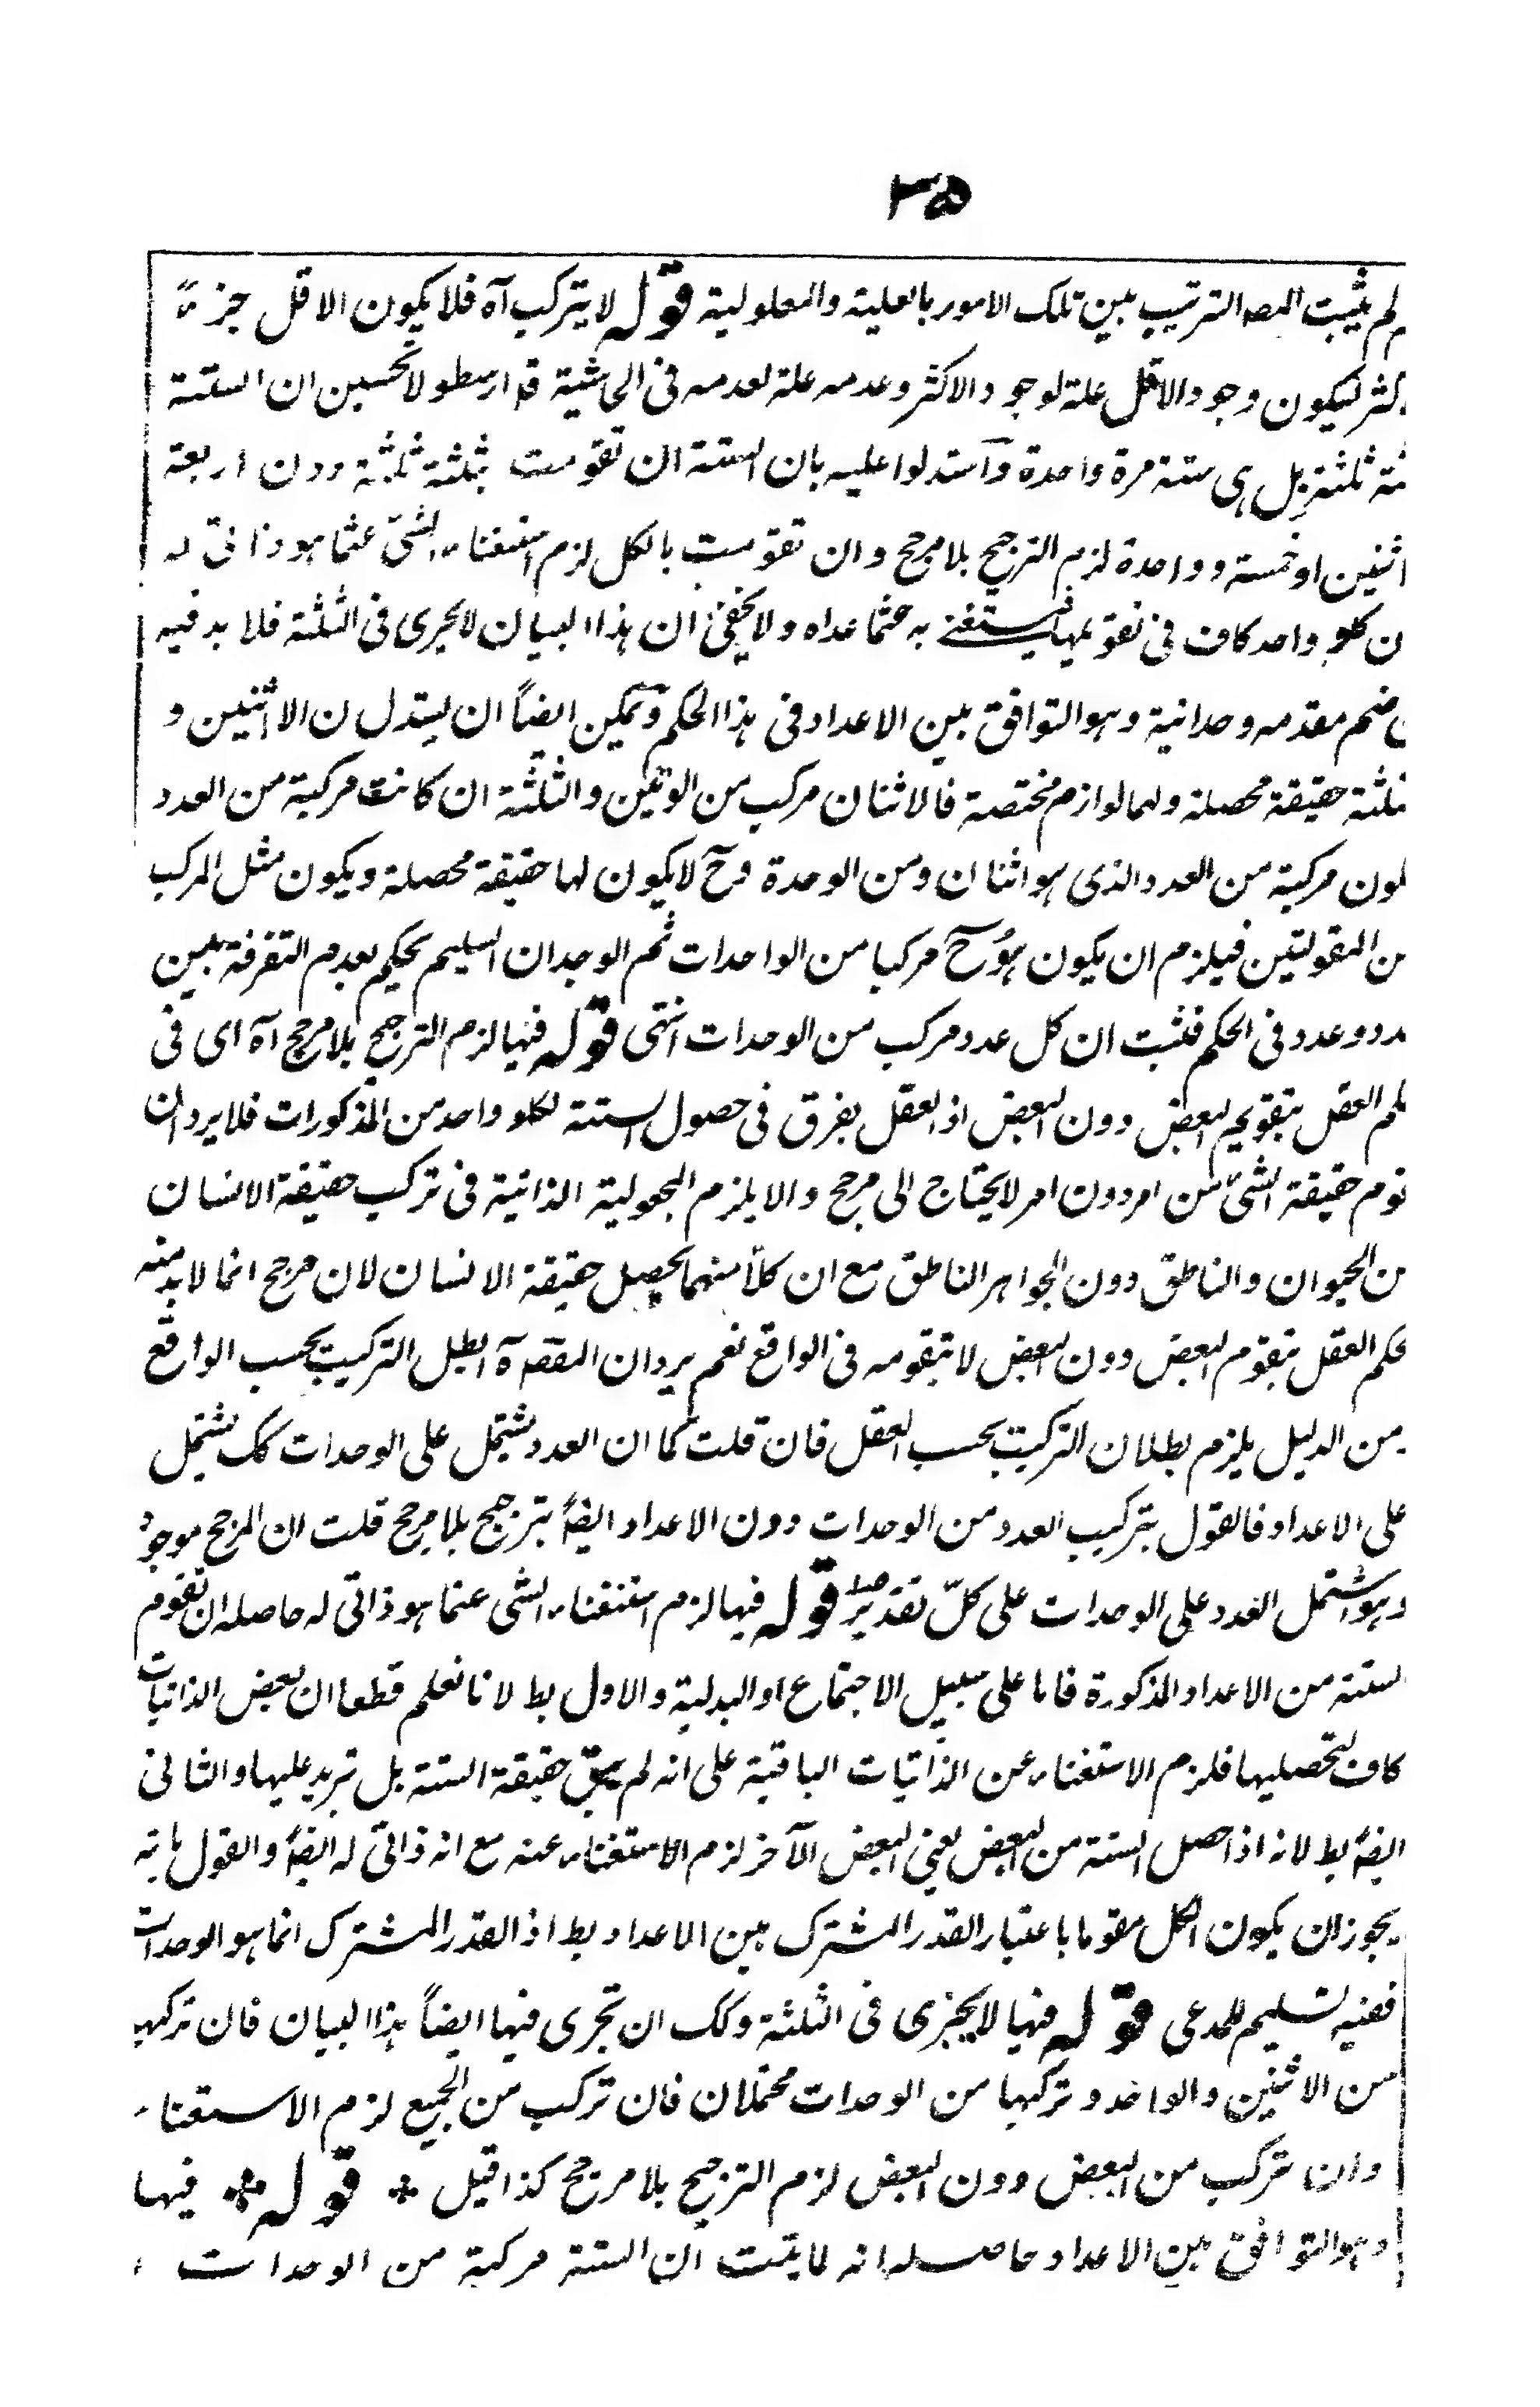 ٣٥
لم يثبت المصہ الترتيب بين تلك الامور بالعلية والمعلولية قولہ لا يتركب آه فلا يكون الاقل جزءً
ليكون وجود الاقل علة لوجود الاكثر وعدمہ علة لعدمہ فى الحاشية قد ارسطو لا تحسبن ان الستة
ثلثة بل ہى ستة مرة واحدة وآستدلوا عليہ بان الستة ان تقومت بثلثة ثلثة دون اربعة
اثنين او خمسة وواحدة لزم الترجيح بلا مرجح وان تقومت بالكل لزم استغناء الشئ عمّا ہو ذاتى لہ
ن كل واحد كاف فى تقويمها فيستغنے بہ عمّا عداه ولا يخفى ان ہذا البيان لا يجرى فى الثلثة فلا بد فيہ
ضم مقدمہ وحدانية وہو التوافق بين الاعداد فى ہذا الحكم وتمكين ايضاً ان يستدل ن الاثنين و
ثلثة حقيقة محصلة ولہا لوازم مختصة فالاثنان مركب من الوحدتين والثلثة ان كانت مركبة من العدد
لون مركبة من العدد الذى ہو اثنان ومن الوحدة وحّ لا يكون لها حقيقة محصلة ويكون مثل المركب
ن المقولتين فيلزم ان يكون ہوُ حّ مركبا من الواحدات ثم الوجدان السليم يحكم بعدم التفرقة بين
عدد وعدد فى الحكم فثبت ان كل عدد مركب من الوحدات انتہى قولہ فيها لزم الترجيح بلا مرجح آه اى فى
حكم العقل بتقويم البعض دون البعض اذ العقل يفرق فى حصول الستة لكل واحد من المذكورات فلا يرد ان
تقوم حقيقة الشئ من امر دون امر لا يحتاج الى مرجح والا يلزم المجعولية الذاتية فى تركب حقيقة الانسان
ن الحيوان والناطق دون الجواہر الناطق مع ان كلّاً منهما يحصل حقيقة الانسان لان مرجح انما لا بد منہ
حكم العقل بتقوم البعض دون البعض لا بتقومہ فى الواقع نعم يرد ان المقصـ آه ابطل التركيب بحسب الواقع
ومن الدليل يلزم بطلان التركيب بحسب العقل فان قلت كما ان العدد يشتمل على الوحدات كك يشتمل
على الاعداد فالقول بتركيب العدد من الوحدات دون الاعداد ايضً ترجيح بلا مرجح قلت ان المرجح موجود
وہو اشتمل العدد على الوحدات على كلّ تقدير قولہ فيها لزم استغناء الشى عمّا ہو ذاتى لہ حاصلہ ان تقوم
الستة من الاعداد المذكورة فاما على سبيل الاجتماع او البدلية والاول بط لانا نعلم قطعا ان بعض الذاتيات
كاف لتحصيلها فلزم الاستغناء عن الذاتيات الباقية على انہ لم يبق حقيقة الستة بل تزيد عليها والثانى
ايضً بط لانہ اذا حصل الستة من البعض يعنى البعض الآخر لزم الاستغناء عنہ مع انہ ذاتى لہ ايضً والقول بانہ
يجوز ان يكون الكل مقوما باعتبار القدر المشترك بين الاعداد بط اذ القدر المشترك انما ہو الوحدات
ففيہ تسليم للمدعى قولہ فيها لا يجزى فى الثلثة وكك ان تجرى فيها ايضاً بہذا البيان فان تركبها
من الاثنين والواحد وتركبها من الوحدات محتملان فان تركب من الجميع لزم الاستغناء
وان تركب من البعض دون البعض لزم الترجيح بلا مرجح كذا قيل ❊ قولہ ❊ فيها
وہو التوافق بين الاعداد حاصلہ انہ لما يثبت ان الستة مركبة من الوحدات